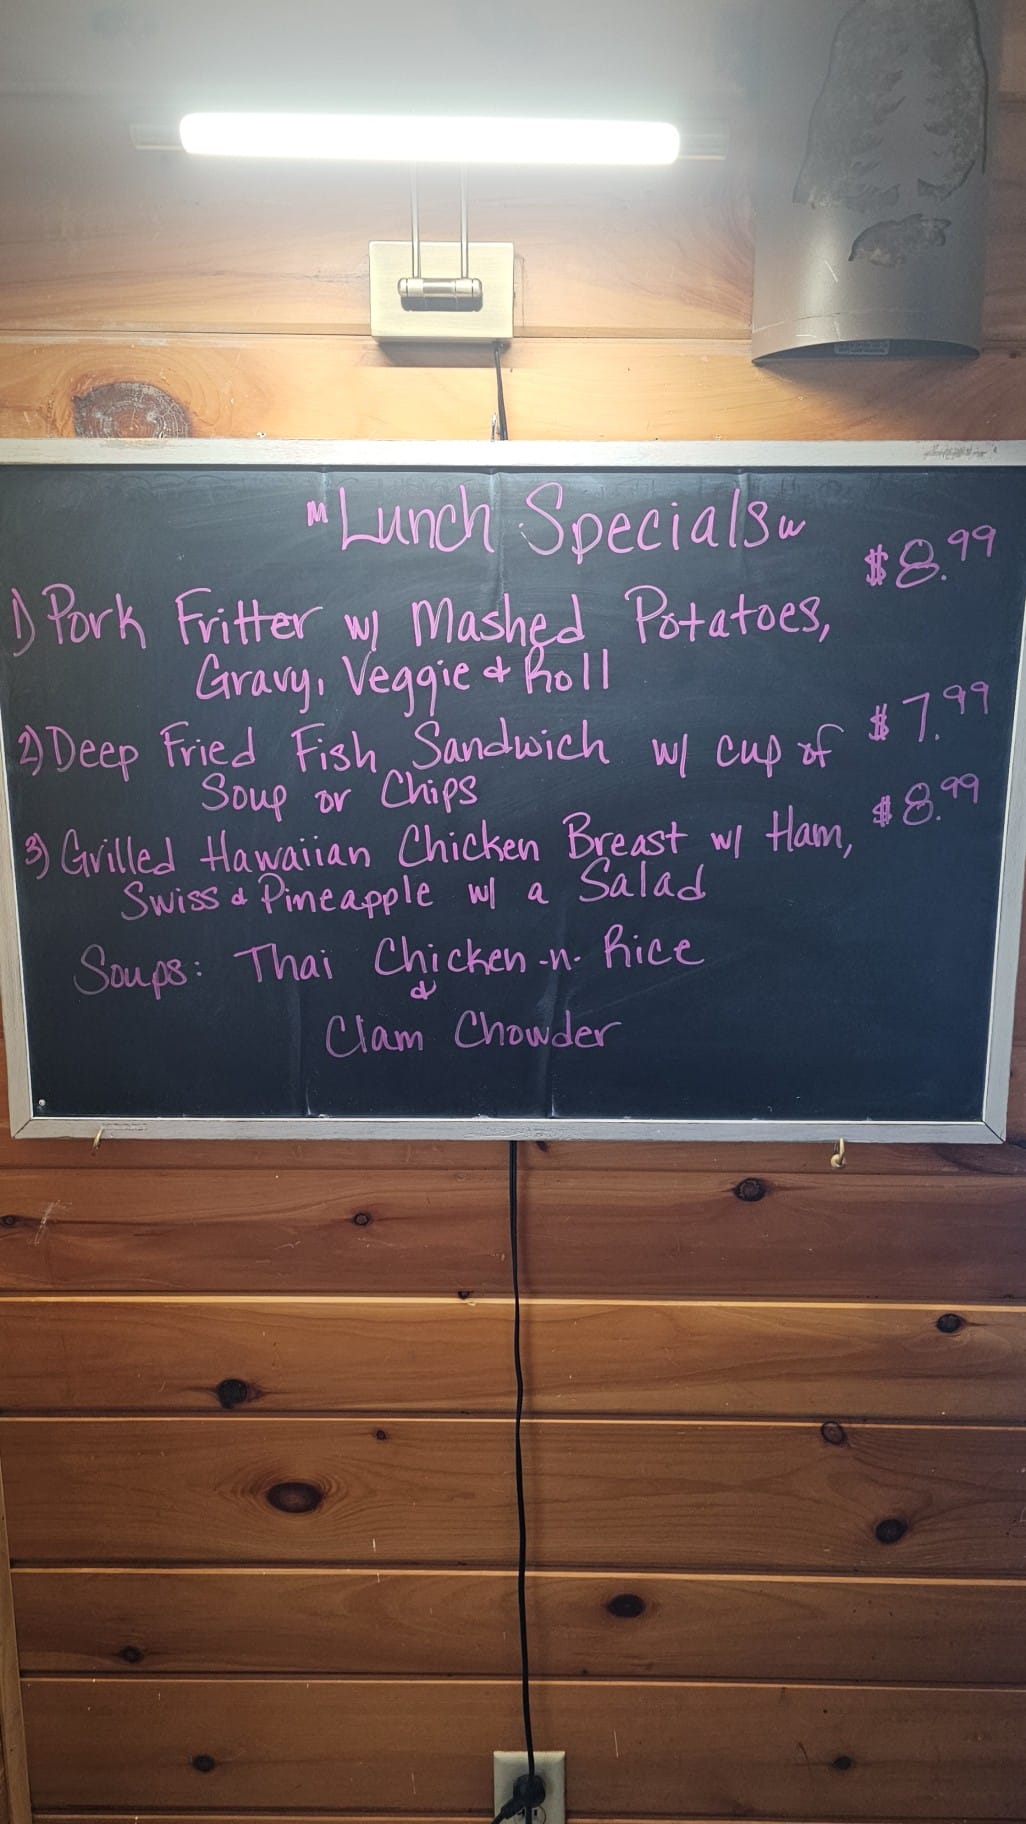 "Lunch Specials"
$8.99
1) Pork Fritter w/ Mashed Potatoes,
Gravy, Veggie & Roll
2) Deep Fried Fish Sandwich w/ cup of $7.99
Soup or Chips
3) Grilled Hawaiian Chicken Breast w/ Ham, $8.99
Swiss & Pineapple w/ a Salad
Soups: Thai Chicken -n- Rice
&
Clam Chowder